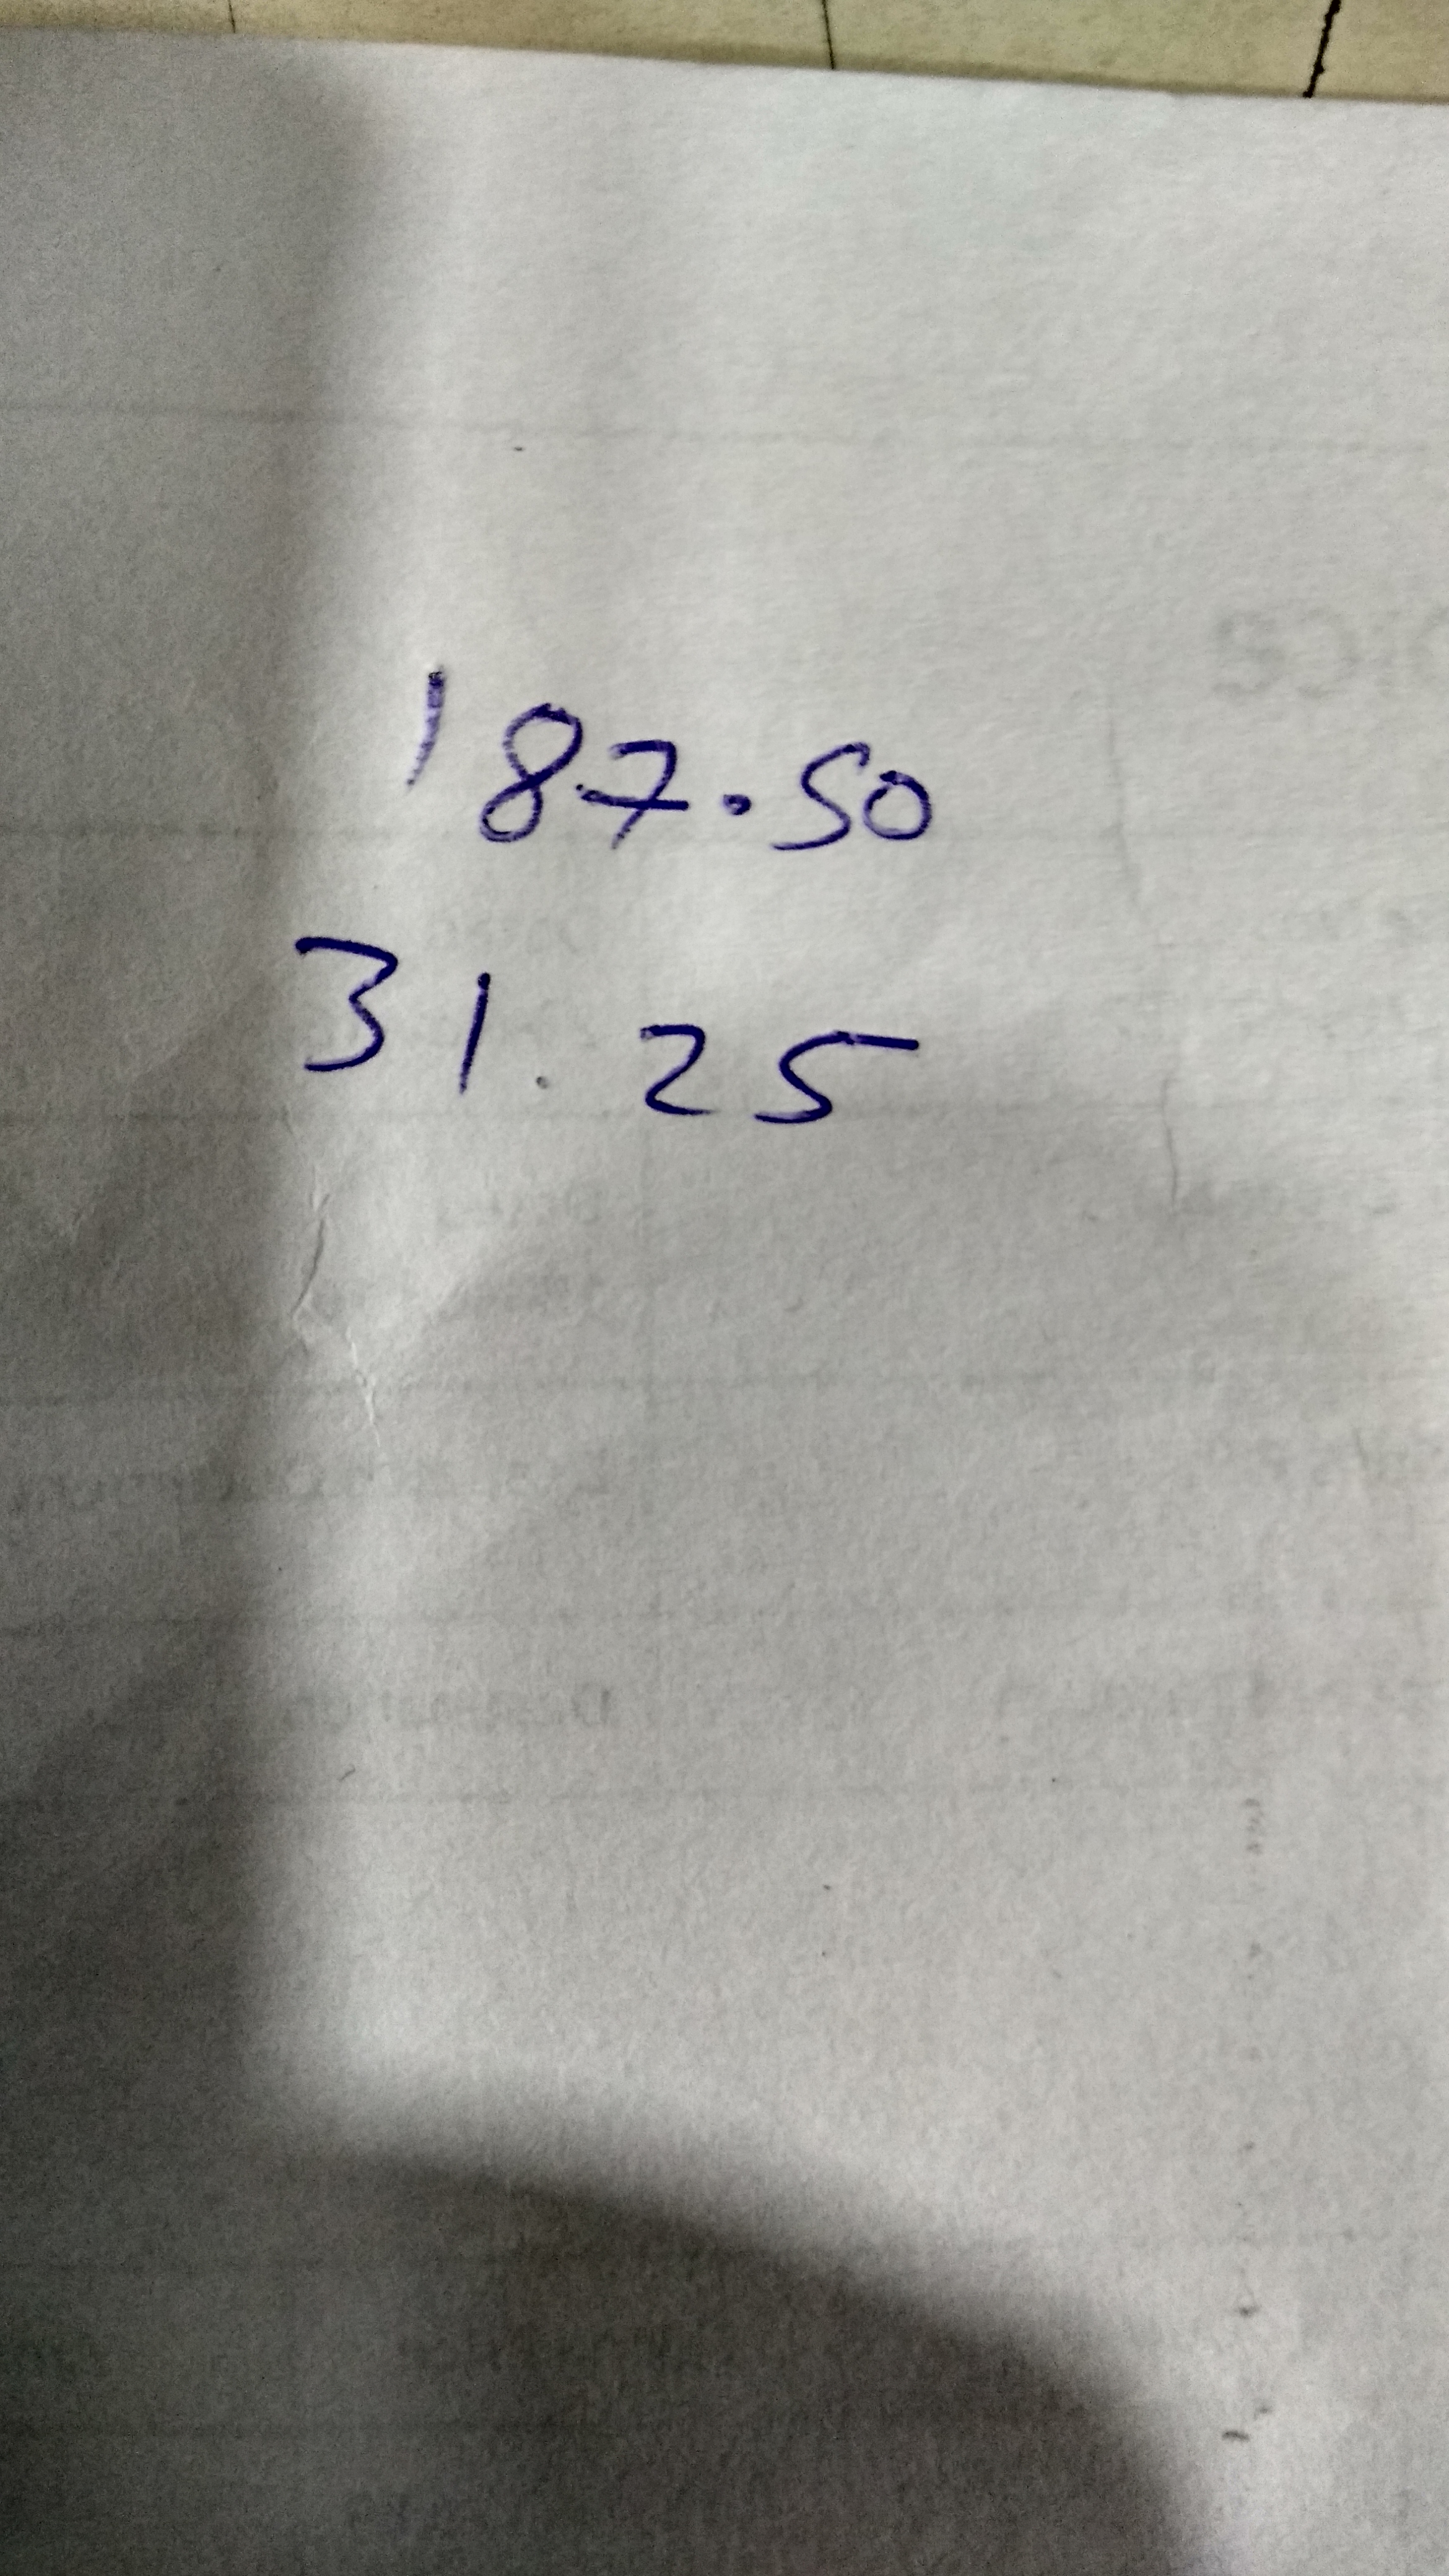 187.50
31.25